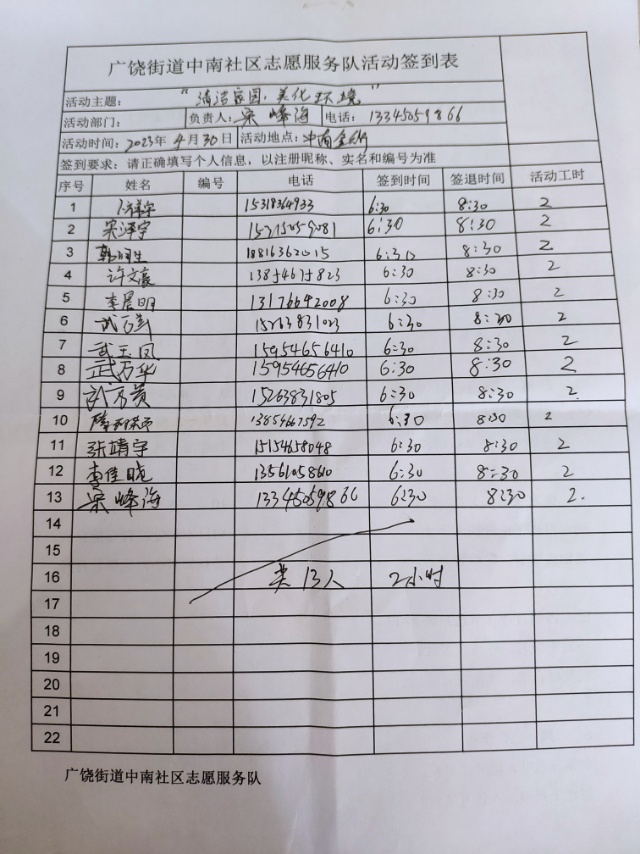 广饶街道中南社区志愿服务队活动签到表
活动主题： “清洁家园，美化环境”
活动部门： 负责人：宋峰海 电话：13345059866
活动时间：2023年4月30日 活动地点：中南
签到要求：请正确填写个人信息，以注册昵称、实名和编号为准
序号 姓名 编号 电话 签到时间 签退时间 活动工时
1 15318364933 6:30 8:30 2
2 宋泽宇 6:30 8:30 2
3 18816362015 6:30 8:30 2
4 13854671823 6:30 8:30 2
5 李晨明 13176692008 6:30 8:30 2
6 武万兰 15263831023 6:30 8:30 2
7 武玉凤 15954656410 6:30 8:30 2
8 武万华 15954656410 6:30 8:30 2
9 武万贵 15263831805 6:30 8:30 2
10 13854667592 6:30 8:30 2
11 张靖宇 15154658048 6:30 8:30 2
12 李佳晓 13561058610 6:30 8:30 2
13 宋峰海 13345059866 6:30 8:30 2
14
15
16 13人 2小时
17
18
19
20
21
22
广饶街道中南社区志愿服务队